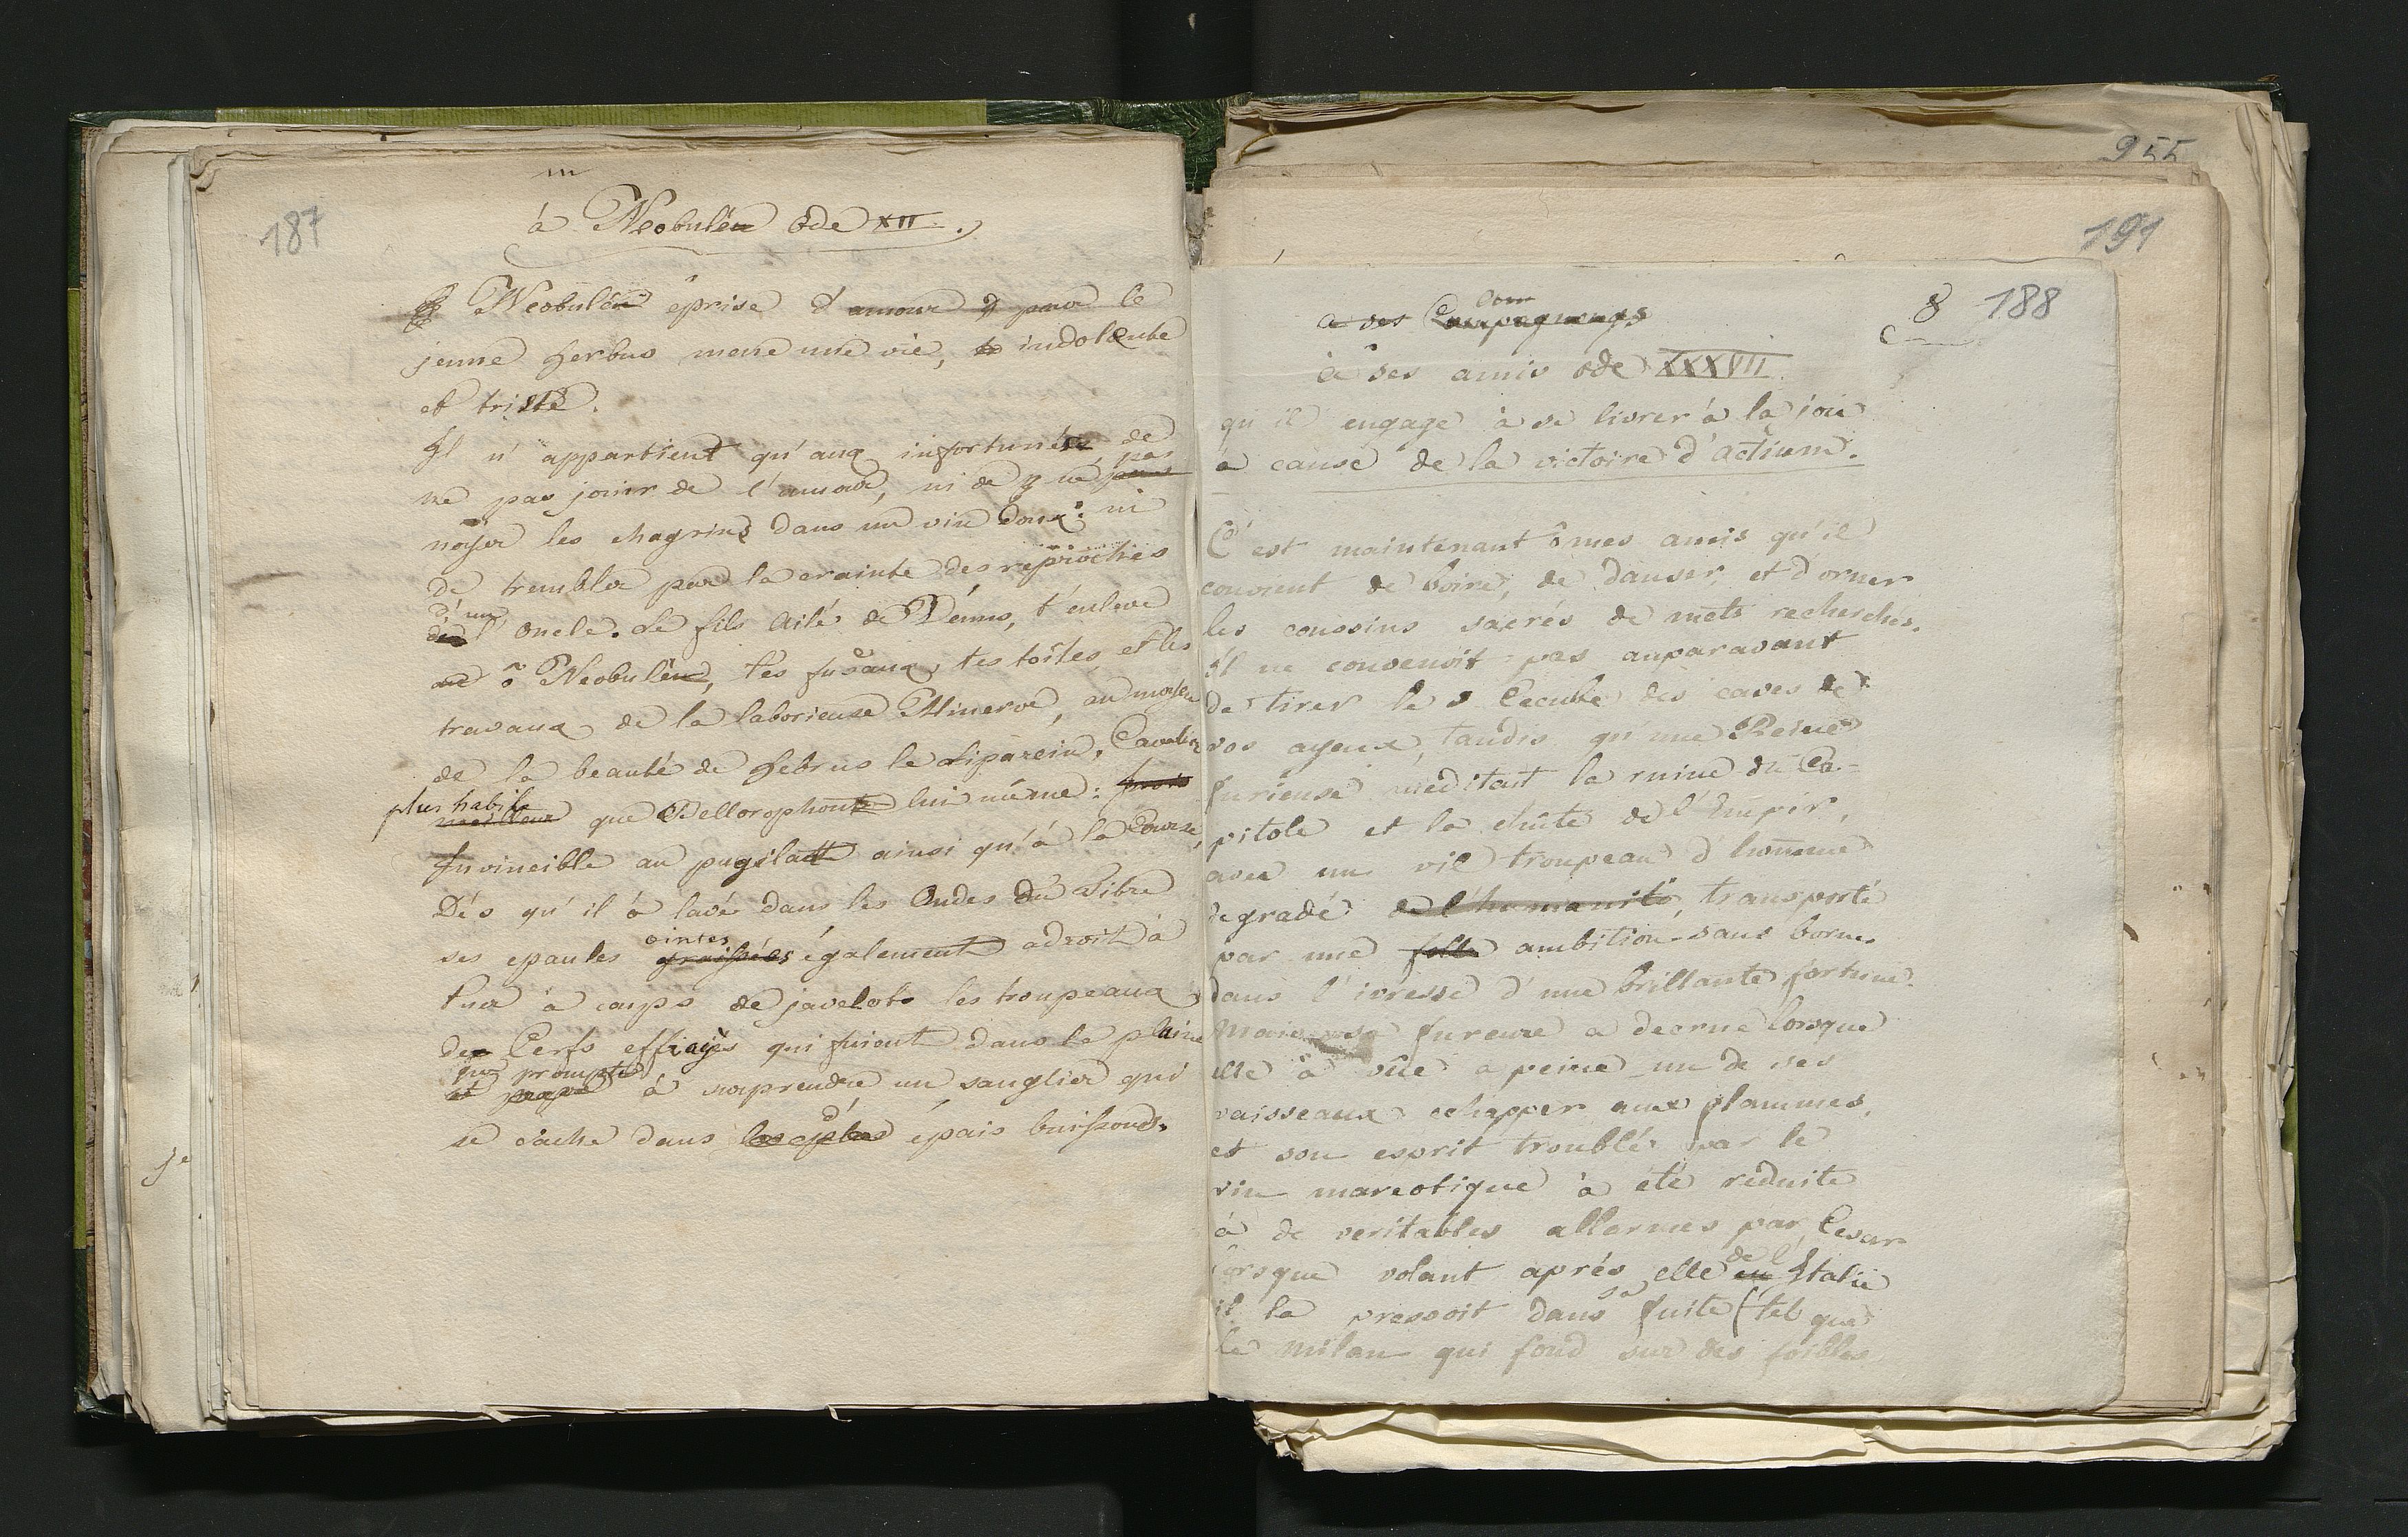 187
à Neobulée ode XII.
Neobulée éprise d'amour pour le
jeune herbus mene une vie, indolente
et triste.
Il n'appartient qu'aux infortunés, de
ne pas jouir de l'amour, ni de ne pas
noyer les chagrins dans un vin doux: ni
de trembler par la crainte des reproches
d'un
oncle. Le fils Ailé de Vénus, t'enleve
ô Neobulée, tes fuseaux, tes toîles, et les
travaux de la laborieuse Minerve, au moyen
de la beauté de hebrus le Liparein, Cavalier
plus habile
meilleur que Bellorophonte lui même:
Invincible au pugilatt ainsi qu'à la Course,
Dés qu'il à lavé dans les Ondes du Tibre
ointes
ses epaules graissées également adroit à
tuer à coups de javelots les troupeaux
des Cerfs effrayés qui fuient dans la plaine
prompte
et à surprendre un sanglier qui
se cache dans d' épais buissons.
je
955
191
8 188
a ses Compagnons
à ses amis ode XXXVII.
qu'il engage à se livrer à la joie
a cause de la victoire d'actium.
C'est maintenant ô mes amis qu'il
convient de boire, de danser, et d'orner
les coussins sacrés de mets recherchés.
Il ne convenoit pas auparavant
de tirer le Cecube des caves de
vos ayeux, tandis qu'une Reine
furieuse meditait la ruine du Ca-
pitole et la chûte de l'Empir,
avec un vil troupeau d'homme
degradé de l'humanité, transporté
par une folle ambition sans bornes
dans l'ivresse d'une brillante fortune.
Mais sa fureure a decrue lorsque
elle à vûe a peine un de ses
vaisseaux echapper aux flammes,
et son esprit troublé par le
vin mareotique à été reduite
à de veritables allarmes par Cesar
de l'
lorsque volant aprés elle en Italie
sa
il la pressoit dans fuite (tel que
le milan qui fond sur des foibles